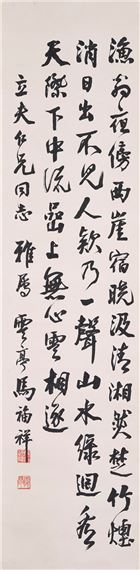 漁翁夜傍西崖宿曉汲清湘燃楚竹煙
消日出不見人欸乃一聲山水綠迴看
天際下中流岩上無心雲相逐
立夫仁兄同志 雅屬 雲亭馬福祥